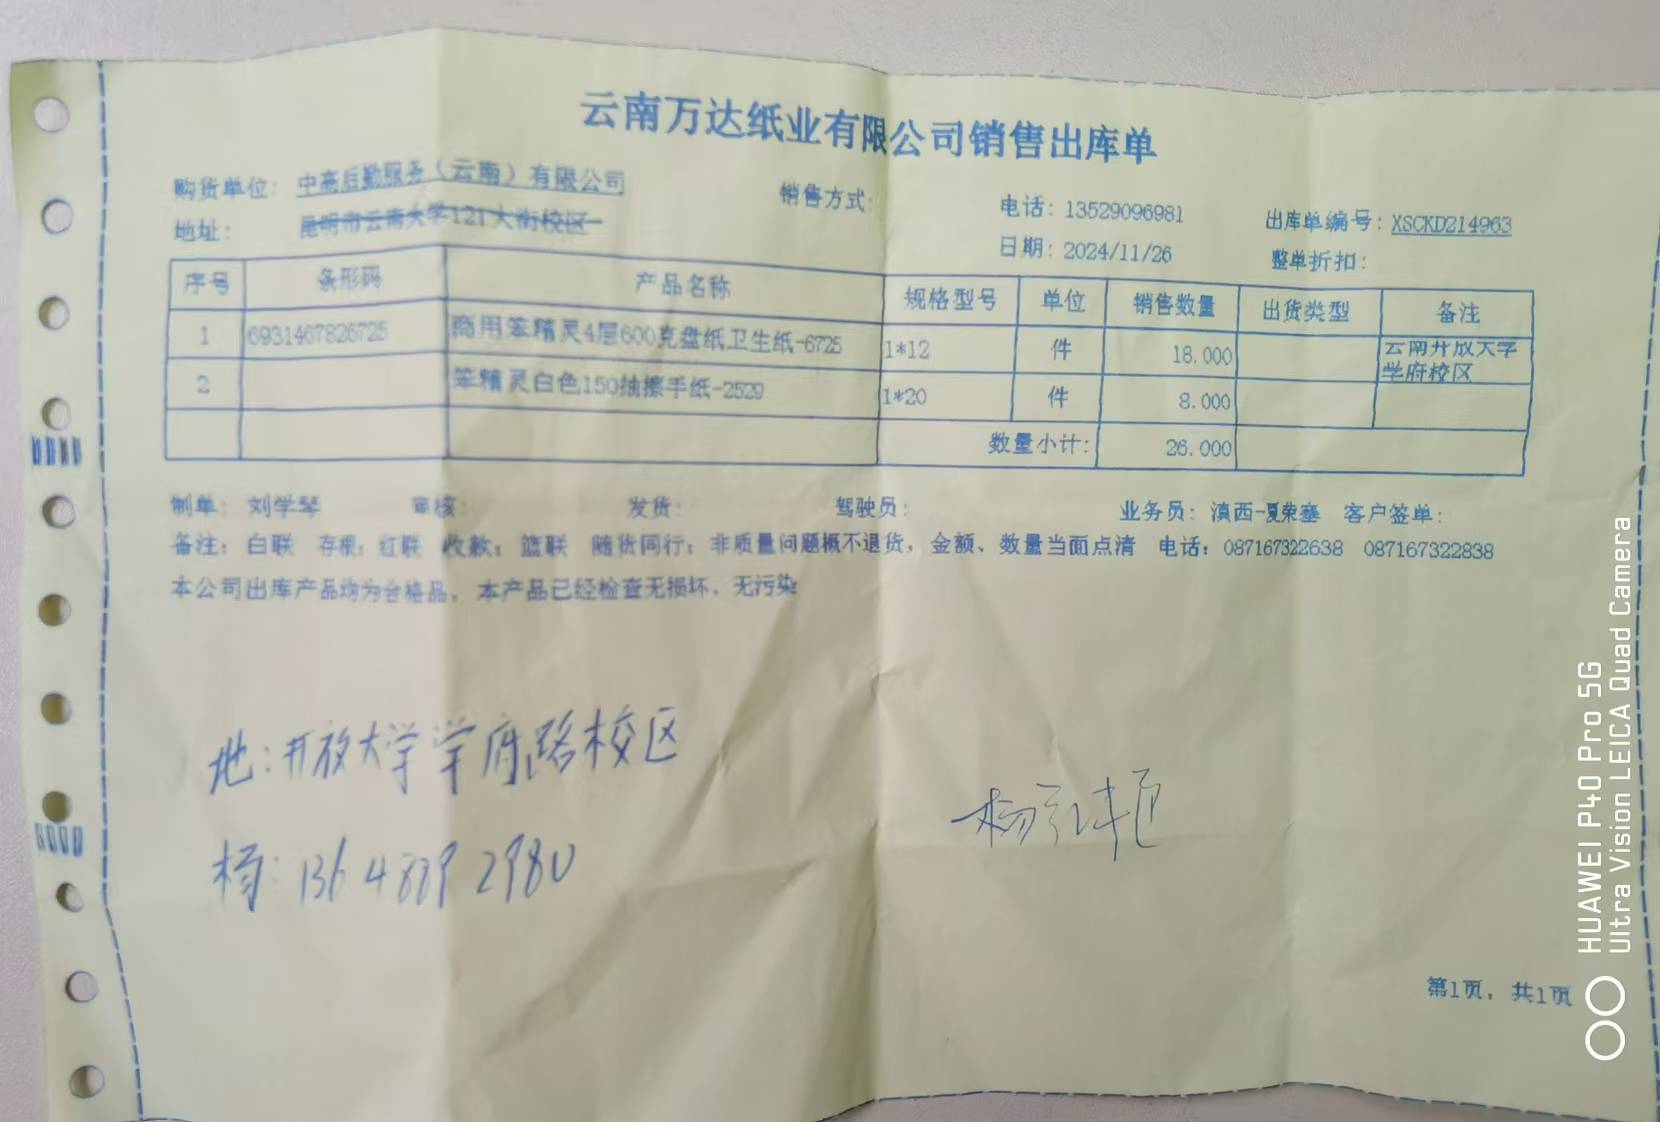 云南万达纸业有限公司销售出库单
购货单位：中高后勤服务（云南）有限公司 销售方式： 电话：13529096981 出库单编号：XSCKD214963
地址：昆明市云南大学121大街校区 日期：2024/11/26 整单折扣：
序号 条形码 产品名称 规格型号 单位 销售数量 出货类型 备注
1 6931467826725 商用笨精灵4层600克盘纸卫生纸-6725 1*12 件 18.000 云南开放大学
学府校区
2 笨精灵白色150抽擦手纸-2529 1*20 件 8.000
数量小计： 26.000
制单：刘学琴 审核： 发货： 驾驶员： 业务员：滇西-夏荣塞 客户签单：
备注：白联 存根；红联 收款；篮联 随货同行；非质量问题概不退货，金额、数量当面点清 电话：087167322638 087167322838
本公司出库产品均为合格品，本产品已经检查无损坏，无污染
地：开放大学学府路校区
杨：136 4 2980
杨
第1页，共1页
HUAWEI P40 Pro 5G
Ultra Vision LEICA Quad Camera